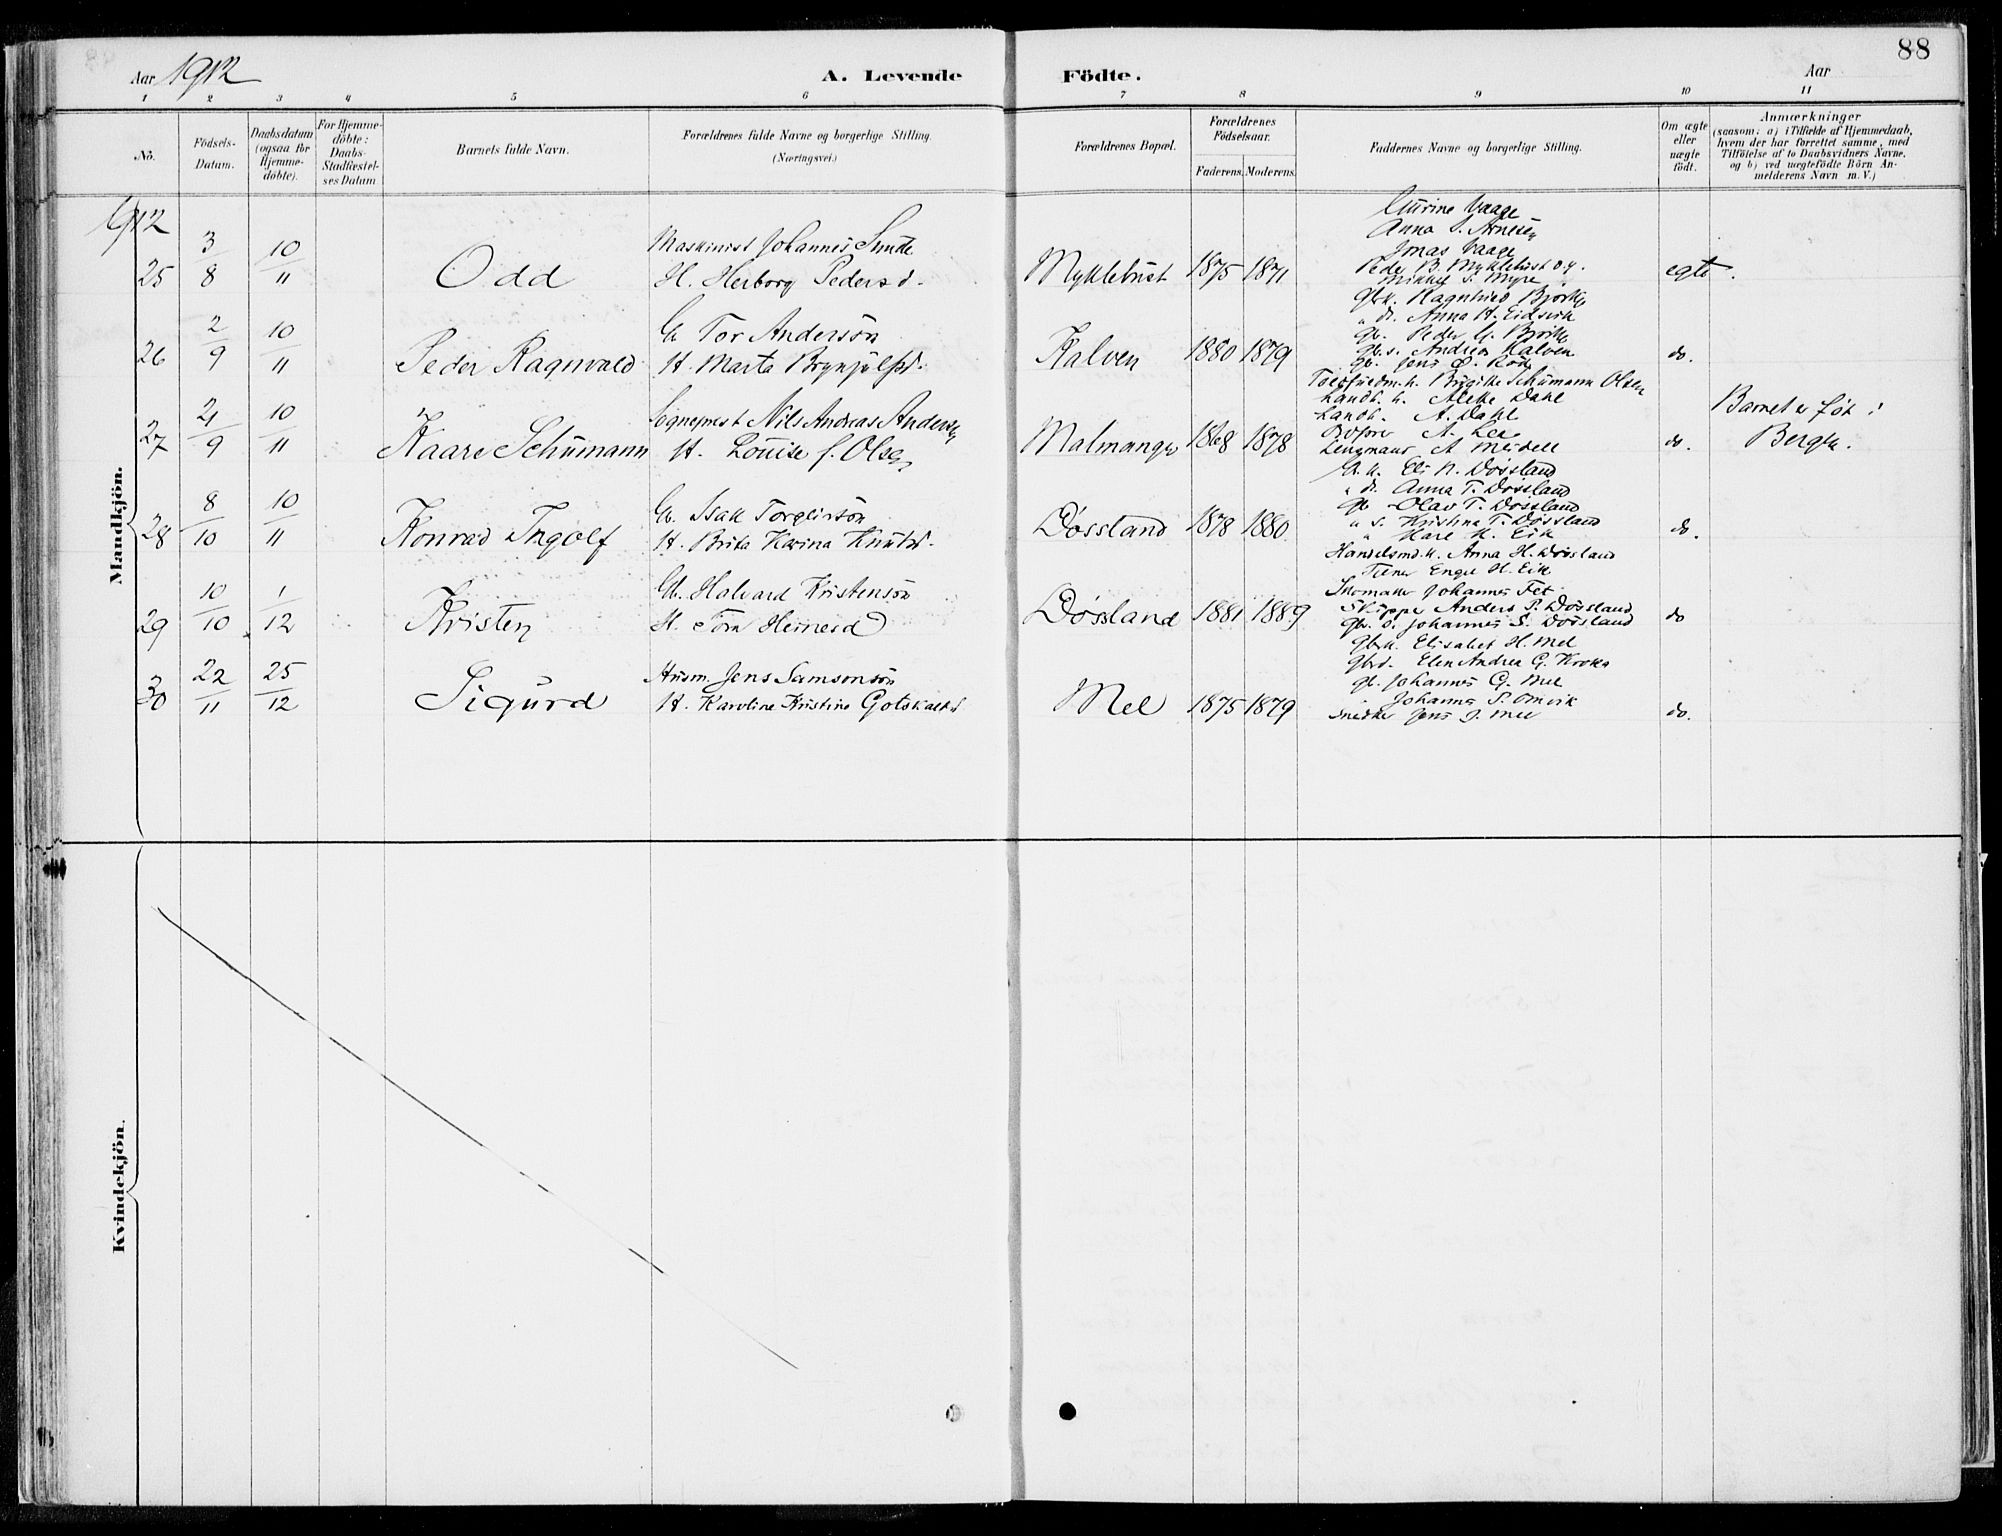 88
Aar 1912
A. Levende Födte.
Aar
1 2 3 4 5 6 7 8 9 10 11
No.
Födsels-Datum.
Daabsdatum (ogsaa for Hjemme-döbte).
For Hjemme-döbte: Daabs-Stadfæstel-ses Datum
Barnets fulde Navn.
Forældrenes fulde Navne og borgerlige Stilling. (Næringsvei.)
Forældrenes Bopæl.
Forældrenes Födselsaar.
Faderens. Moderens.
Faddernes Navne og borgerlige Stilling.
Om ægte eller uægte födt.
Anmærkninger (saasom: a) i Tilfælde af Hjemmedaab, hvem der har forrettet samme, med Tilföielse af to Daabsvidners Navne, og b) ved uægtefödte Börn An-melderens Navn m. V.)
Mandkjön.
1912
25 3/8 10/11 Odd
Maskinist Johannes Sunde
H. Herborg Pedersd.
Myklebust 1875 1871
Gurine Vaage
Anna S. Arnesen
Jonas Vaage
Peder B. Myklebust
Mikkel S. Myre
egte.
26 2/9 10/11 Peder Ragnvald
G. Tor Andersön
H. Marta Brynjulfsd.
Kalven 1880 1879
Gbr.k. Ragnhild Bjorke
" d. Anna H. Eidsvik
Gb. Peder G. Bjorke
Gb.s. Andreas Kalven
Gb. Jens O.
do.
27 21/9 10/11 Kaare Schumann
Sogneprest Nils Andreas Andersen
H. Louise f. Olsen
Malmanger 1868 1878
Birgitte Schumann Olsen
Landh. h. Alette Dahl
Landh. A. Dahl
A. Lee
Lensmand A Meidell
do.
Barnet er født i
Bergen.
28 8/10 10/11 Konrad Ingolf
Gb. Isak Torgeirsön
H. Brita Karina Knutsd.
Døssland 1878 1880
G.k. Eli N. Døssland
" d. Anna T. Døssland
Gb Olav T. Døssland
" s. Kristina T. Døssland
" Hare H. Eik
do.
29 10/10 1/12 Kristen
Gb. Halvard Kristensön
H. Tora Heinesd
Døssland 1881 1889
Handelsmd.k. Anna H. Døssland
Tjener Engel H. Eik
Skomaker Johannes Fet
Skipper Anders P. Døssland
Gbr. s. Johannes S. Døssland
do
30 22/11 25/12 Sigurd
Husm. Jens Samsonsön
H. Karoline Kristine Gotskalksd
Mel 1875 1879
Gbrk. Elisabet H. Mel
Gbrd. Elen Andrea G. Kroka
Gb. Johannes G. Mel
Johannes S. Omvik
Snedker Jens J. Mel
do.
Kvindekjön.